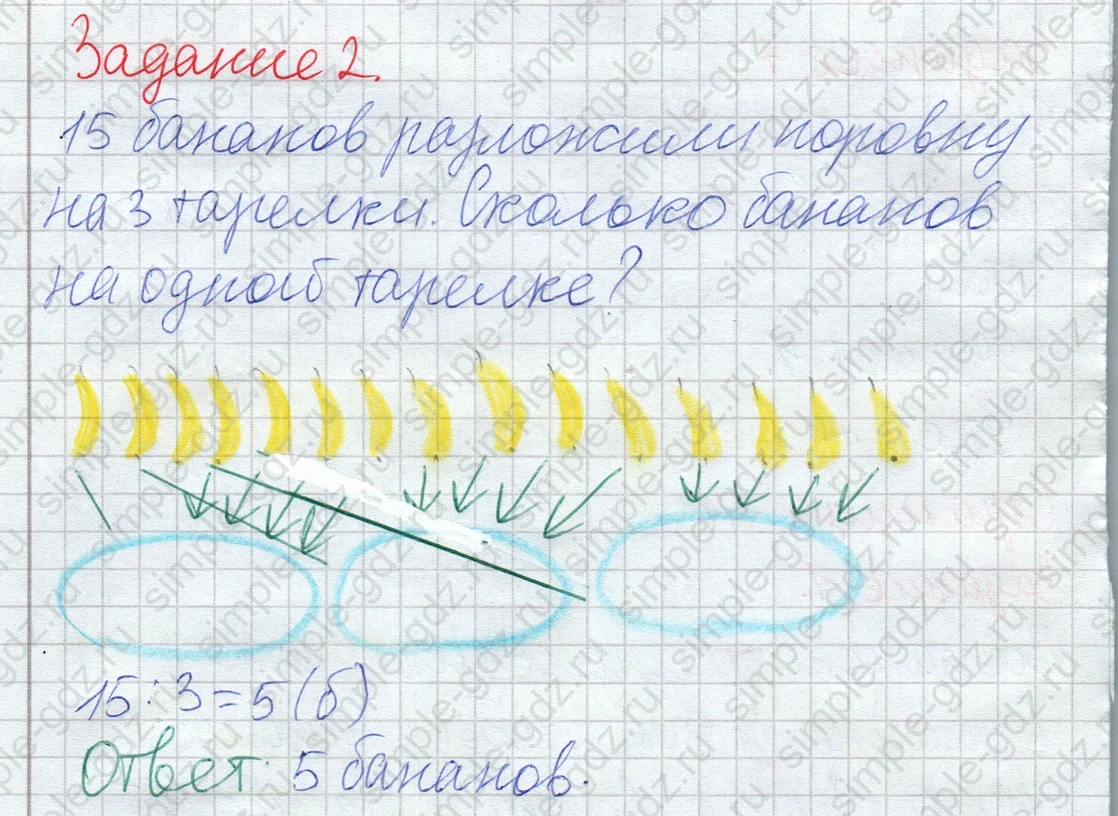 Задание 2.
15 бананов разложили поровну
на 3 тарелки. Сколько бананов
на одной тарелке?
15 : 3 = 5 (б)
Ответ: 5 бананов.
simple-gdz.ru